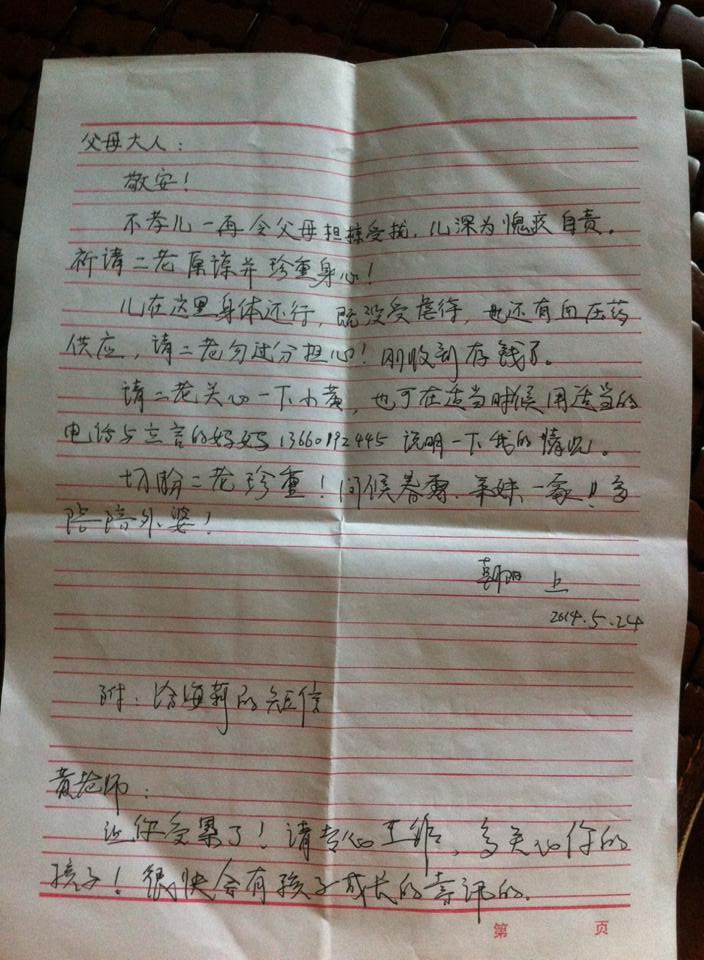 父母大人：
敬安！
不孝儿一再令父母担惊受扰，儿深为愧疚自责。
祈请二老原谅并珍重身心！
儿在这里身体还行，既没受虐待，也还有白压药
供应，请二老勿过分担心！刚收到存钱了。
请二老关心一下小黄，也可在适当时候用适当的
电话与立言的妈妈13660192445说明一下我的情况。
切盼二老珍重！问候春霞、弟妹一家！多
陪陪外婆！
朝阳 上
2014.5.24
附：给海莉的短信
黄老师：
让你受累了！请专心工作，多关心你的
孩子！很快会有孩子成长的喜讯的。
第 页